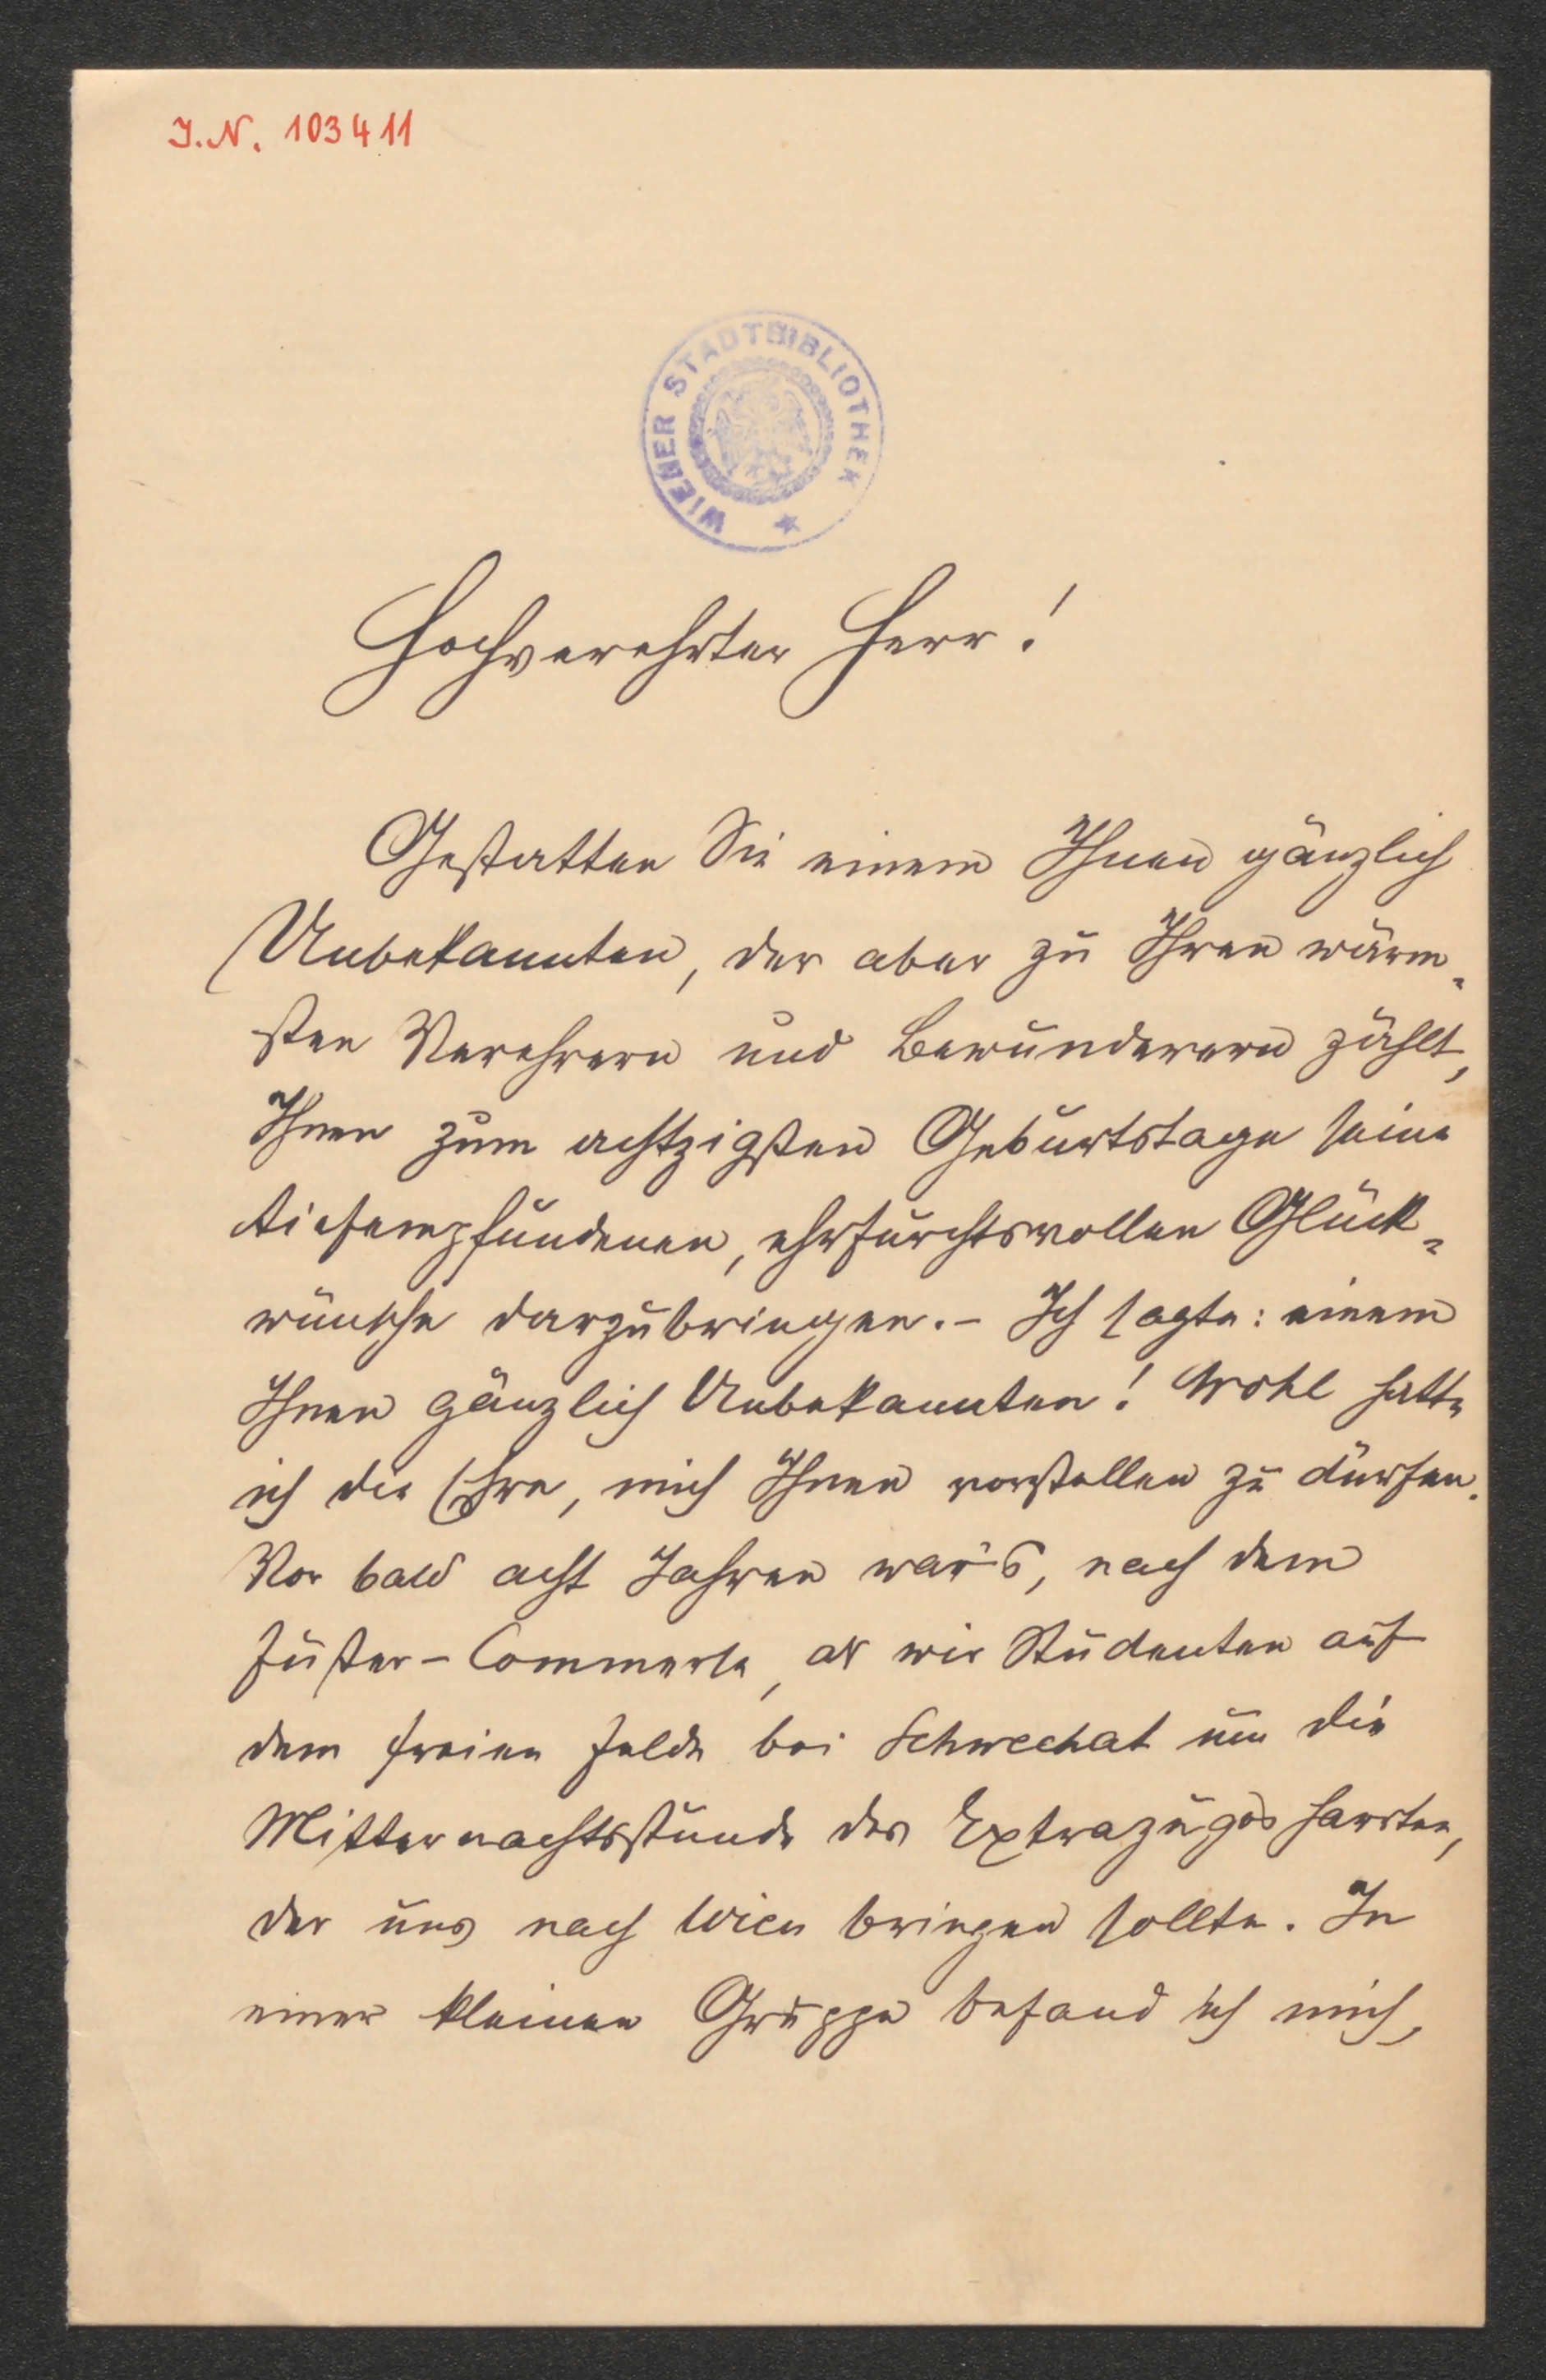 I.N. 103411
WIENER STADTBIBLIOTHEK
Hochverehrter Herr!
Gestatten Sie einem Ihnen gänzlich
Unbekannten, der aber zu Ihren wärm-
sten Verehrern und Bewunderern zählt,
Ihnen zum achtzigsten Geburtstage seine
tiefempfundenen, ehrfurchtsvollen Glück-
wünsche darzubringen. – Ich sagte: einem
Ihnen gänzlich Unbekannten! Wohl hatte
ich die Ehre, mich Ihnen vorstellen zu dürfen.
Vor bald acht Jahren war's, nach dem
Füster-Commerse, als wir Studenten auf
dem freien Felde bei Schwechat um die
Mitternachtsstunde des Extrazuges harrten,
der uns nach Wien bringen sollte. In
einer kleinen Gruppe befand ich mich,